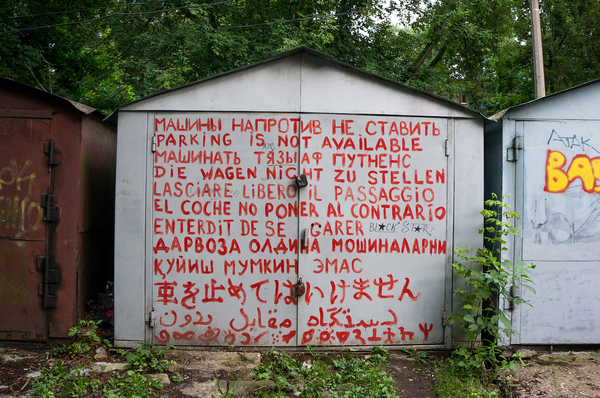 МАШИНЫ НАПРОТИВ НЕ СТАВИТЬ
PARKING IS NOT AVAILABLE
DIE WAGEN NICHT ZU STELLEN
LASCIARE LIBERO IL PASSAGGIO
EL COCHE NO PONER AL CONTRARIO
ENTERDIT DE SE GARER
BLACK STAR
ДАРВОЗА ОЛДИНА МОШИНАЛАРНИ
ҚУЙИШ МУМКИН ЭМАС
車を止めてはいけません
АТАК
BAS